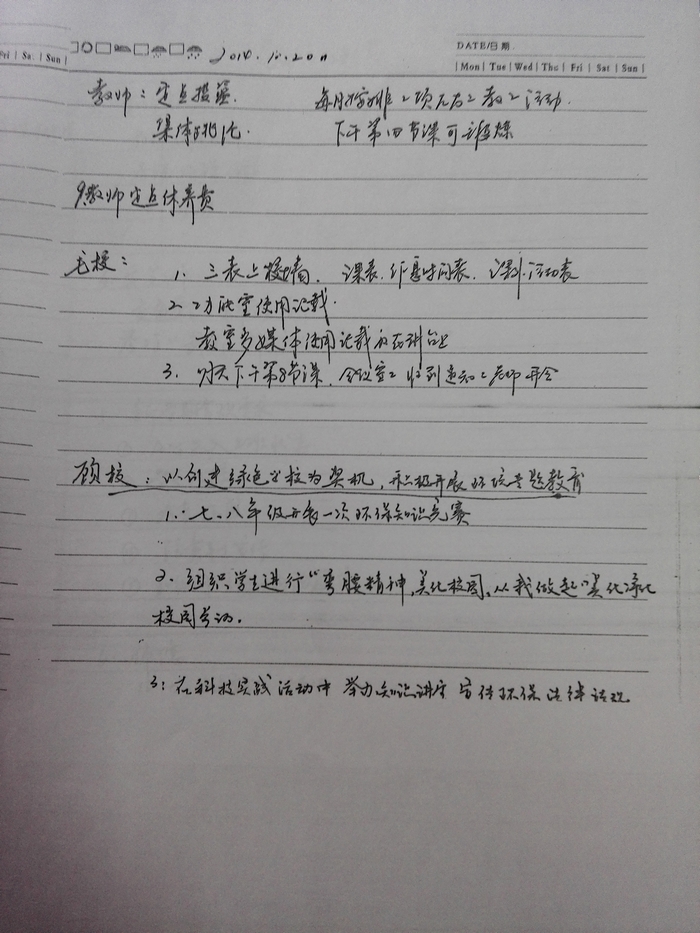 Fri | Sa. | Sun |
2014.10.20日
DATE/日期
| Mon | Tue | Wed | Thu | Fri | Sat | Sun |
教师：定点投篮. 每月安排2项左右 教工活动.
集体跳绳. 下午第四节课可锻炼
9.教师定点休养费
毛校： 1. 三表上墙. 课表.作息时间表.课外活动表
2. 功能室使用记载.
教室多媒体使用记载
3. 明天下午第8节课，会议室，收到通知 老师开会
顾校：以创建绿色学校为契机，积极开展环境专题教育
1. 七、八年级开展一次环保知识竞赛
2. 组织学生进行“弯腰精神,美化校园,从我做起”美化净化
校园劳动.
3: 在科技实践活动中 举办知识讲座 宣传环保法律法规